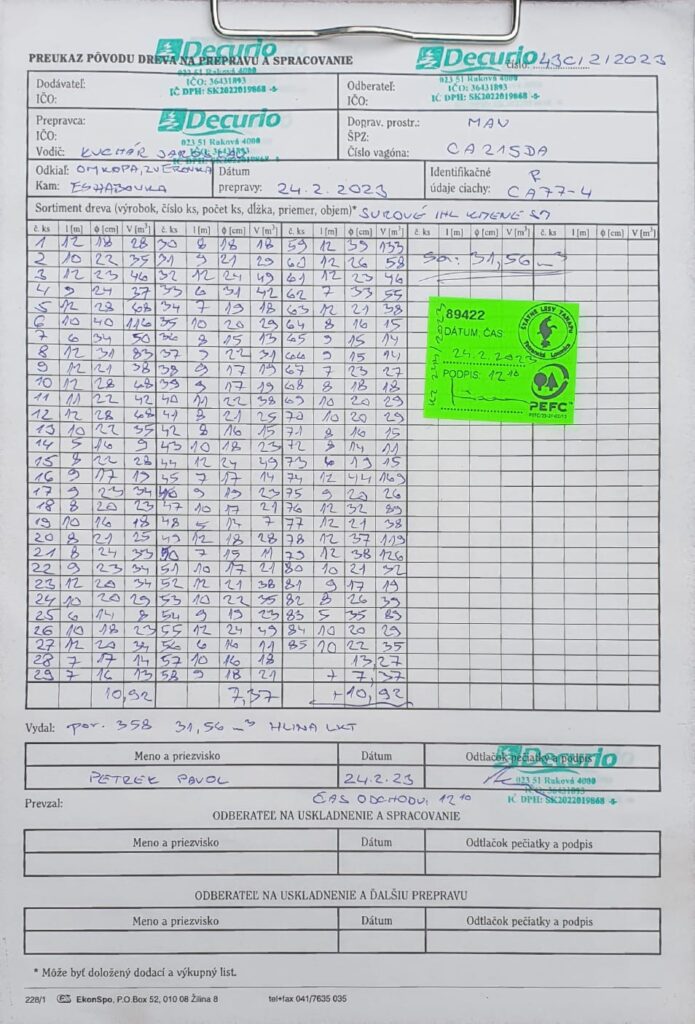 PREUKAZ PÔVODU DREVA NA PREPRAVU A SPRACOVANIE
Decurio
023 51 Raková 4000
IČO: 36431893
IČ DPH: SK2022019868
Decurio
023 51 Raková 4000
IČO: 36431893
IČ DPH: SK2022019868
číslo: 43C/2/2023
Dodávateľ:
IČO:
Odberateľ:
IČO:
Prepravca:
IČO:
Decurio
023 51 Raková 4000
Vodič: KUCHÁR
Doprav. prostr.: MAN
ŠPZ:
Číslo vagóna: CA215DA
Odkiaľ: ZVEROVKA
Kam:
Dátum
prepravy: 24.2.2023
Identifikačné
údaje ciachy: CA77-4
Sortiment dreva (výrobok, číslo ks, počet ks, dĺžka, priemer, objem)* SUROVÉ IHL
č. ks l [m] ϕ [cm] V [m³] č. ks l [m] ϕ [cm] V [m³] č. ks l [m] ϕ [cm] V [m³] č. ks l [m] ϕ [cm] V [m³] č. ks l [m] ϕ [cm] V [m³]
1 12 18 28 30 8 18 18 59 12 39 133
2 10 22 35 31 9 21 29 60 12 26 58
31,56 m³
3 12 23 46 32 12 24 49 61 12 23 46
4 9 24 37 33 6 31 42 62 7 33 55
5 12 28 68 34 7 19 18 63 12 21 38
6 10 40 116 35 10 20 29 64 8 16 15
7 6 34 50 36 8 15 13 65 9 15 14
8 12 31 83 37 9 22 31 66 9 15 14
9 12 21 38 38 9 17 19 67 7 23 27
10 12 28 68 39 9 17 19 68 8 18 18
11 11 22 42 40 11 22 38 69 10 20 29
12 12 28 68 41 8 21 25 70 10 20 29
13 10 22 35 42 8 16 15 71 8 16 15
14 5 16 9 43 10 18 23 72 8 14 11
15 8 22 28 44 12 24 49 73 6 19 15
16 9 17 19 45 7 17 14 74 12 44 169
17 9 23 34 46 9 19 23 75 9 20 26
18 8 20 23 47 10 17 21 76 12 32 89
19 10 16 18 48 5 14 7 77 12 21 38
20 8 21 25 49 12 18 28 78 12 37 119
21 8 24 33 50 7 15 11 79 12 38 126
22 9 23 34 51 10 17 21 80 10 21 32
23 12 20 34 52 12 21 38 81 9 17 19
24 10 20 29 53 10 22 35 82 8 26 39
25 6 14 8 54 9 19 23 83 5 35 89
26 10 18 23 55 12 24 49 84 10 20 29
27 12 20 34 56 6 16 11 85 10 22 35
28 7 17 14 57 10 16 18 13,27
29 7 16 13 58 9 18 21 + 7,37
10,92 7,37 + 10,92
89422
DÁTUM, ČAS:
24.2.2023
PODPIS: 12¹⁰
ŠTÁTNE LESY TANAPU
Tatranská Lomnica
PEFC
Vydal: por. 358 31,56 m³ HLINA LKT
Meno a priezvisko Dátum Odtlačok pečiatky a podpis
PETREK PAVOL 24.2.23
Decurio
023 51 Raková 4000
IČO: 36431893
IČ DPH: SK2022019868
Prevzal: ČAS ODCHODU: 12¹⁰
ODBERATEĽ NA USKLADNENIE A SPRACOVANIE
Meno a priezvisko Dátum Odtlačok pečiatky a podpis
ODBERATEĽ NA USKLADNENIE A ĎALŠIU PREPRAVU
Meno a priezvisko Dátum Odtlačok pečiatky a podpis
* Môže byť doložený dodací a výkupný list.
228/1 EkonSpo, P.O.Box 52, 010 08 Žilina 8 tel+fax 041/7635 035